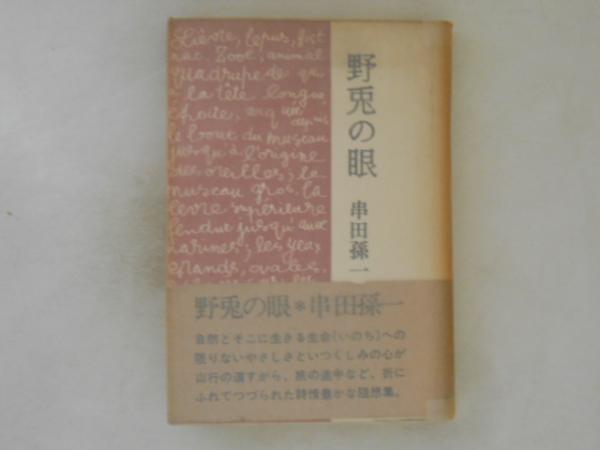 野兎の眼
串田孫一
Lièvre, lepus, fict
nat. Zool., animal
quadrupede de qu
la tête longue,
étroite, arquée
depuis
le bout du museau
jusqu'à l'origine
des oreilles; le
museau gros. la
lèvre supérieure
fendue jusqu'aux
narines; les yeux
grands, ovales,
野兎の眼*串田孫一
自然とそこに生きる生命(いのち)への
限りないやさしさといつくしみの心が
山行の道すがら、旅の途中など、折に
ふれてつづられた詩情豊かな随想集。